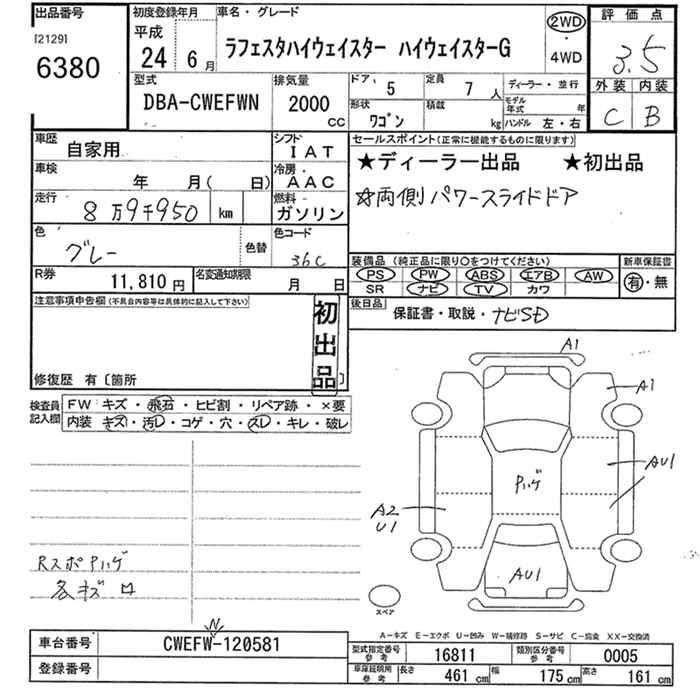 出品番号
[2129]
6380
初度登録年月
平成
24年 6月
車名・グレード
ラフェスタハイウェイスター ハイウェイスターG
2WD
・
4WD
評価点
3.5
外装 内装
C B
型式
DBA-CWEFWN
排気量
2000
CC
ドア 5
定員 7人
形状 ワゴン
積載 kg
ディーラー・並行
モデル年式 年
ハンドル 左・右
車歴
自家用
シフト
IAT
車検
年 月( 日)
冷房
AAC
走行
8万9千950 km
燃料
ガソリン
色
グレー
色替
色コード
36C
R券
11,810円
名変通知期限
月 日
セールスポイント(正常に機能するものに限ります)
★ディーラー出品 ★初出品
☆両側パワースライドドア
装備品(純正品に限り○をつけてください)
PS PW ABS エアB AW
SR ナビ TV カワ
新車保証書
有・無
後日品
保証書・取説・ナビSD
注意事項申告欄(不具合内容等は具体的に記入して下さい)
初出品
修復歴 有〔箇所 〕
検査員記入欄
FW キズ・飛石・ヒビ割・リペア跡・×要
内装 キズ・汚レ・コゲ・穴・スレ・キレ・破レ
RスポPハゲ
各キズ ロ
A1
A1
AU1
Pハゲ
A2
U1
AU1
スペア
A-キズ E-エクボ U-凹み W-補修跡 S-サビ C-腐食 XX-交換済
車台番号
N
CWEFW-120581
登録番号
型式指定番号 参考
16811
類別区分番号 参考
0005
車庫証明用 参考
長さ 461cm
幅 175cm
高さ 161cm